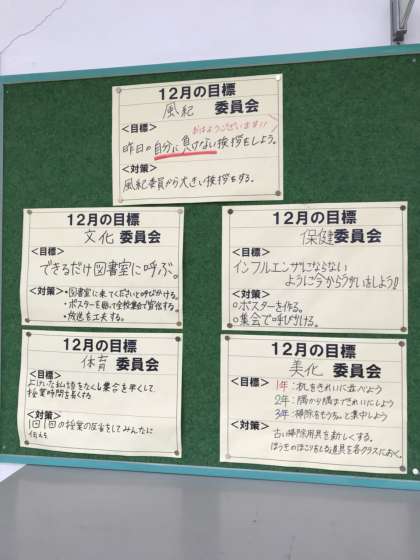 12月の目標
風紀 委員会
<目標>
おはようございます!!
昨日の自分に負けない挨拶をしよう。
<対策>
風紀委員から大きい挨拶をする。
12月の目標
文化 委員会
<目標>
できるだけ図書室に呼ぶ。
<対策>
・図書室に来てくださいと呼びかける。
・ポスターを
・放送を工夫する。
12月の目標
保健委員会
<目標>
インフルエンザにならない
ように今からうがいをしよう!
<対策>
○ポスターを作る。
○集会で呼びかける。
12月の目標
体育 委員会
<目標>
よけいな私語をなくし集合を早くして
授業時間を長くする
<対策>
1回1回の授業の反省をしてみんなに
伝える
12月の目標
美化 委員会
<目標>
1年:机をきれいに並べよう
2年:隅から隅まできれいにしよう
3年:掃除をもうちょっと集中しよう
<対策>
古い掃除用具を新しくする。
ほうきのほこりをとる道具を各クラスにおく。